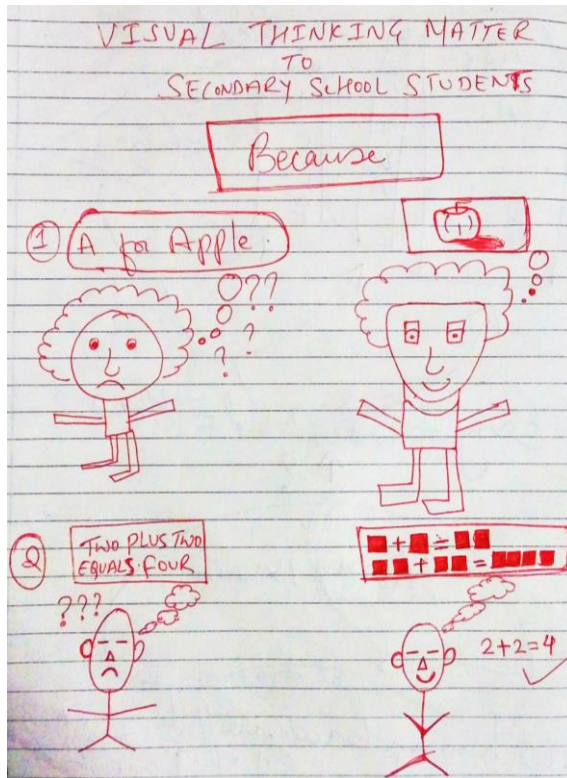 VISUAL THINKING MATTER
TO
SECONDARY SCHOOL STUDENTS
Because
1 A for Apple.
??
?
?
2 TWO PLUS TWO
EQUALS FOUR
■ + ■ = ■ ■
■ ■ + ■ ■ = ■ ■ ■ ■
???
2+2=4